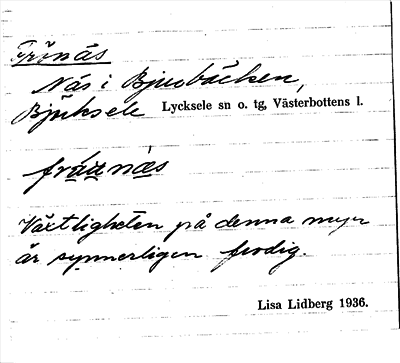 Frönäs
Näs i Bjurbäcken,
Bjuksele Lycksele sn o. tg, Västerbottens l.
näs
Växtligheten på denna myr
är synnerligen frodig.
Lisa Lidberg 1936.